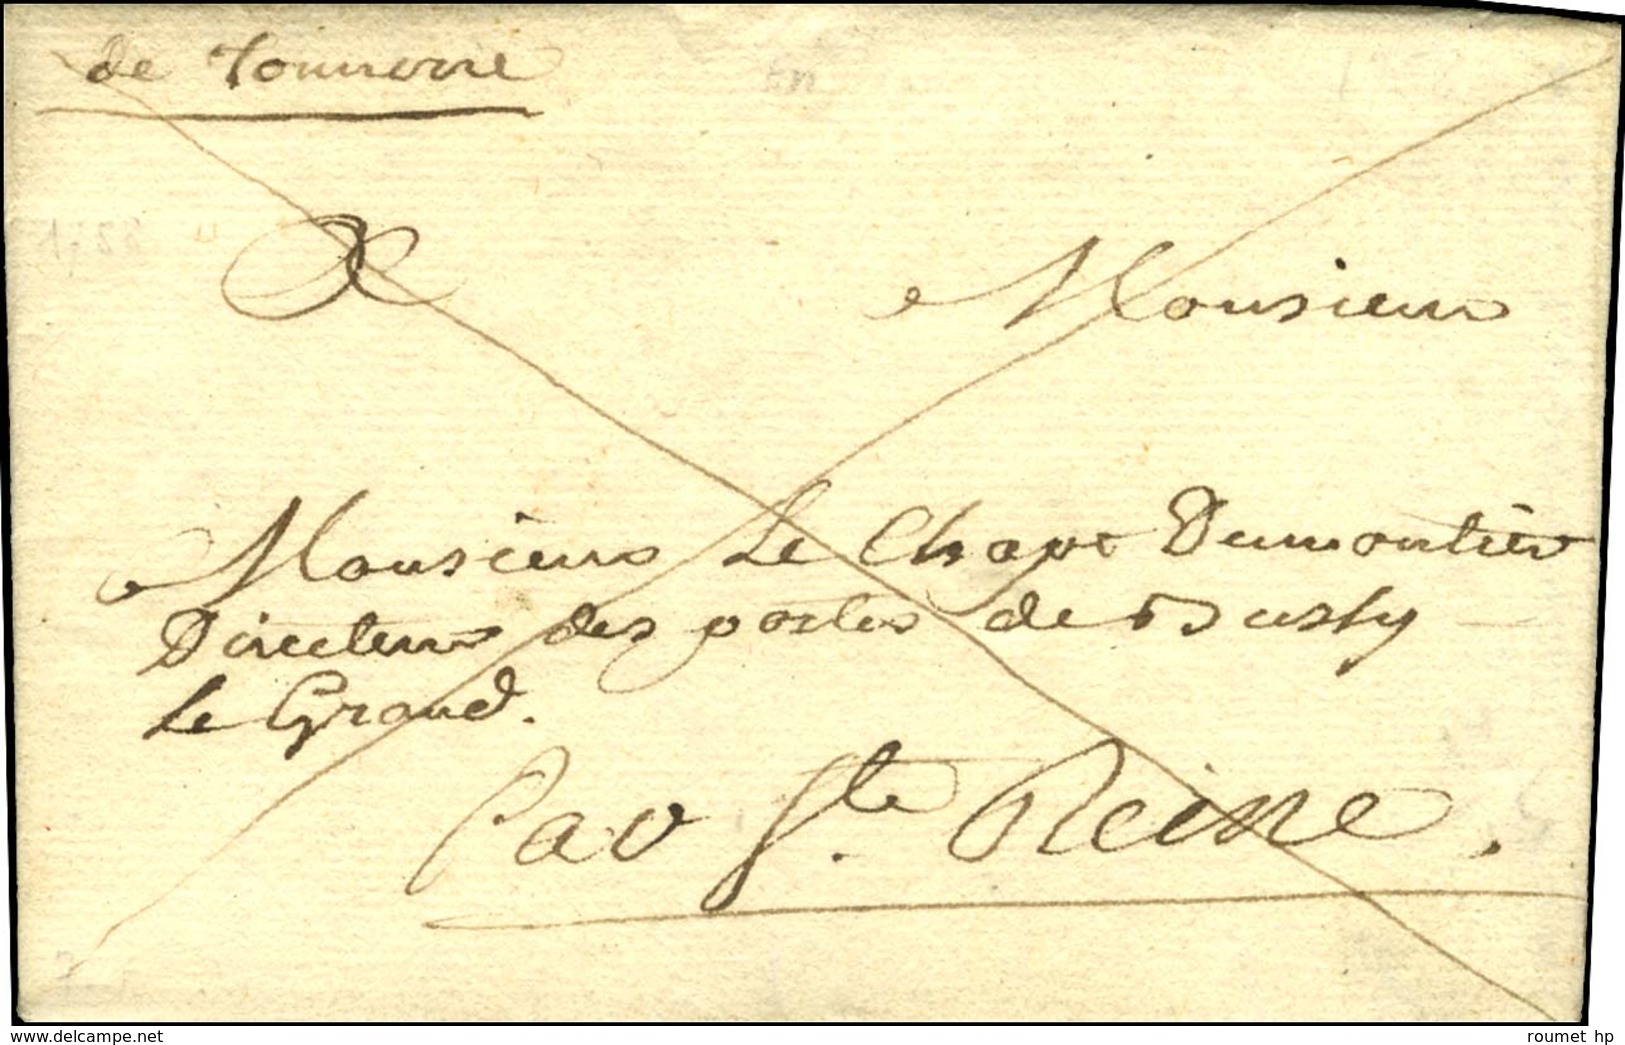 de Tonnerre
A Monsieur
Monsieur Le Chape Dumontier
Directeur des postes de Bussy
Le Grand.
Par Ste Reine.
delcampe.net
roumet hp